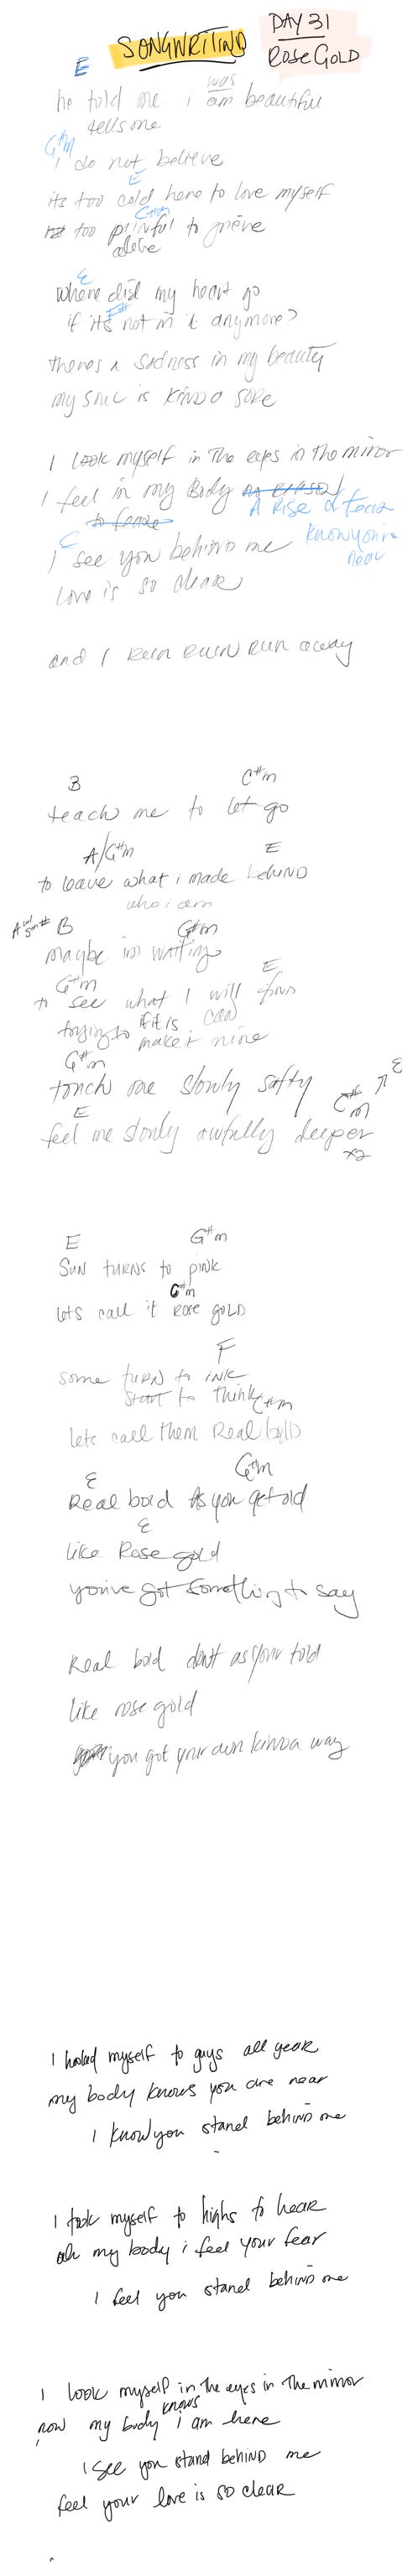 SONGWRITING
DAY 31
ROSE GOLD
E
was
he told me i am beautiful
tells me
G#m
i do not believe
E
its too cold here to love myself
C#m
too painful to grieve
E
where did my heart go
if its not in it anymore?
theres a sadness in my beauty
my soul is kinda sore
I look myself in the eyes in the mirror
I feel in my Body
A Rise of fear
to fear
C
I see you behind me
know you're near
Love is so clear
and I Run Run Run away
B C#m
teach me to let go
A/G#m E
to leave what i made behind
who i am
B G#m
maybe im waiting
G#m E
to see what I will find
trying to if it is can
make it mine
G#m
touch me slowly softly
E C#m E
feel me slowly awfully deeper
x2
E G#m
Sun turns to pink
C#m
lets call it Rose GOLD
F
some turn to ink
start to think
C#m
lets call them Real bold
E G#m
Real bold As you get old
E
like Rose gold
you've got something to say
Real bold don't as your told
like rose gold
you got your own kinda way
I myself to guys all year
my body knows you are near
I know you stand behind me
I took myself to highs to hear
my body i feel your fear
I feel you stand behind me
I look myself in the eyes in the mirror
knows
now my body i am here
I see you stand behind me
feel your love is so clear